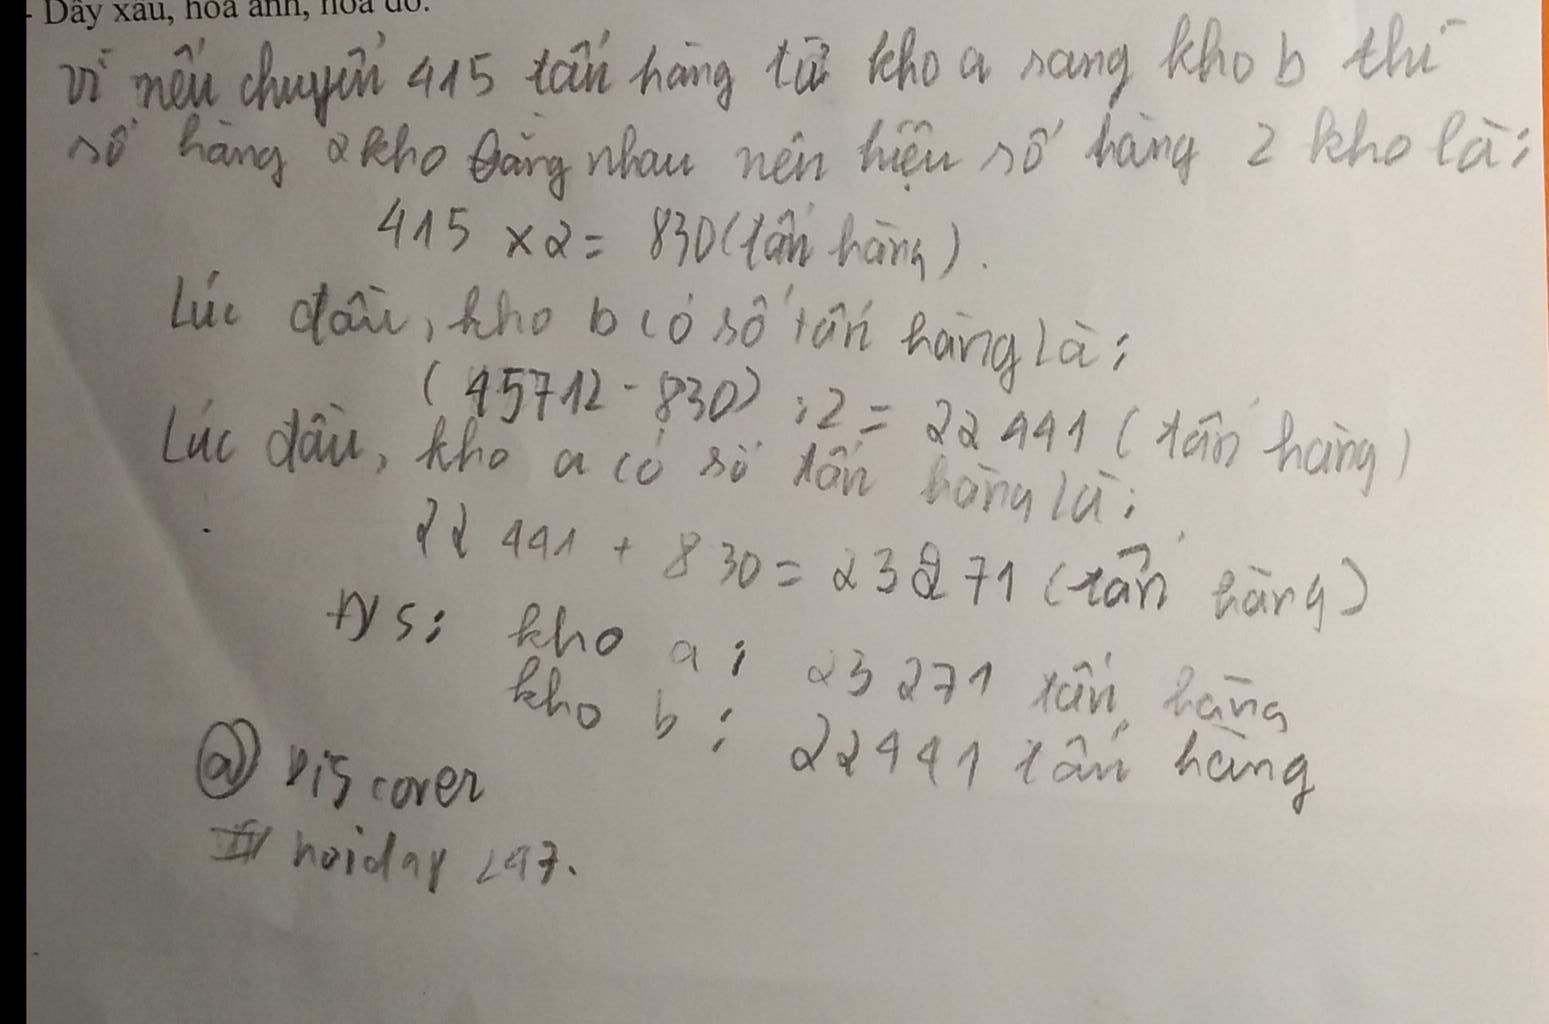 - Dây xâu, hoa anh, hoa đỏ.
vì nếu chuyển 415 tấn hàng từ kho a sang kho b thì
số hàng 2 kho bằng nhau nên hiệu số hàng 2 kho là:
415 x 2 = 830 (tấn hàng).
Lúc đầu, kho b có số tấn hàng là:
(45712 - 830) : 2 = 22 441 (tấn hàng)
Lúc đầu, kho a có số tấn hàng là:
22 441 + 830 = 23 271 (tấn hàng)
ĐS: kho a: 23 271 tấn hàng
kho b: 22441 tấn hàng
@ Discover
hoiday 247.